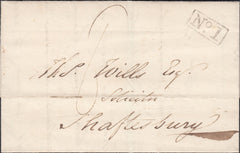 No 1
Thos. Wills Esqr.
Solicitor
Shaftesbury